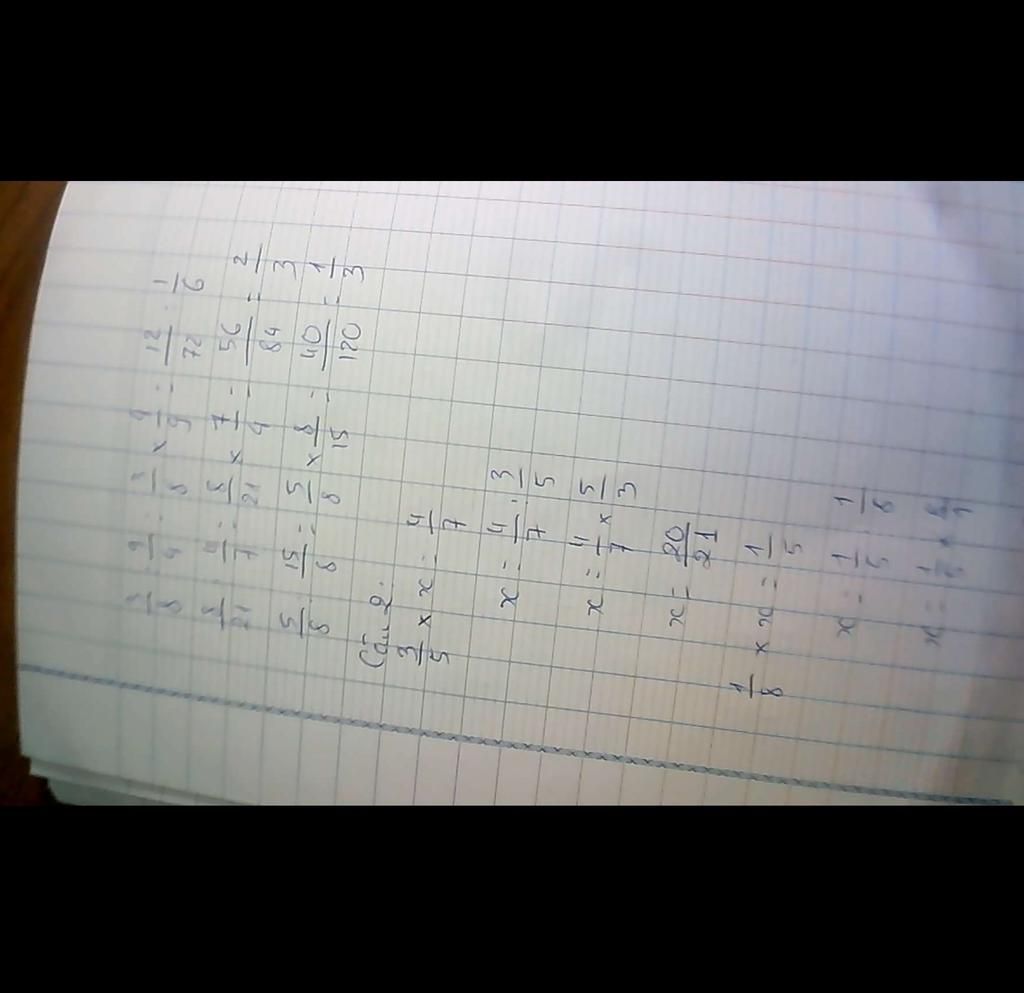 3/8 : 9/4 = 3/8 × 4/9 = 12/72 = 1/6
8/21 : 4/7 = 8/21 × 7/4 = 56/84 = 2/3
5/8 : 15/8 = 5/8 × 8/15 = 40/120 = 1/3
Câu 2:
3/5 × x = 4/7
x = 4/7 : 3/5
x = 4/7 × 5/3
x = 20/21
1/8 × x = 1/5
x = 1/5 : 1/8
x = 1/5 × 8/1